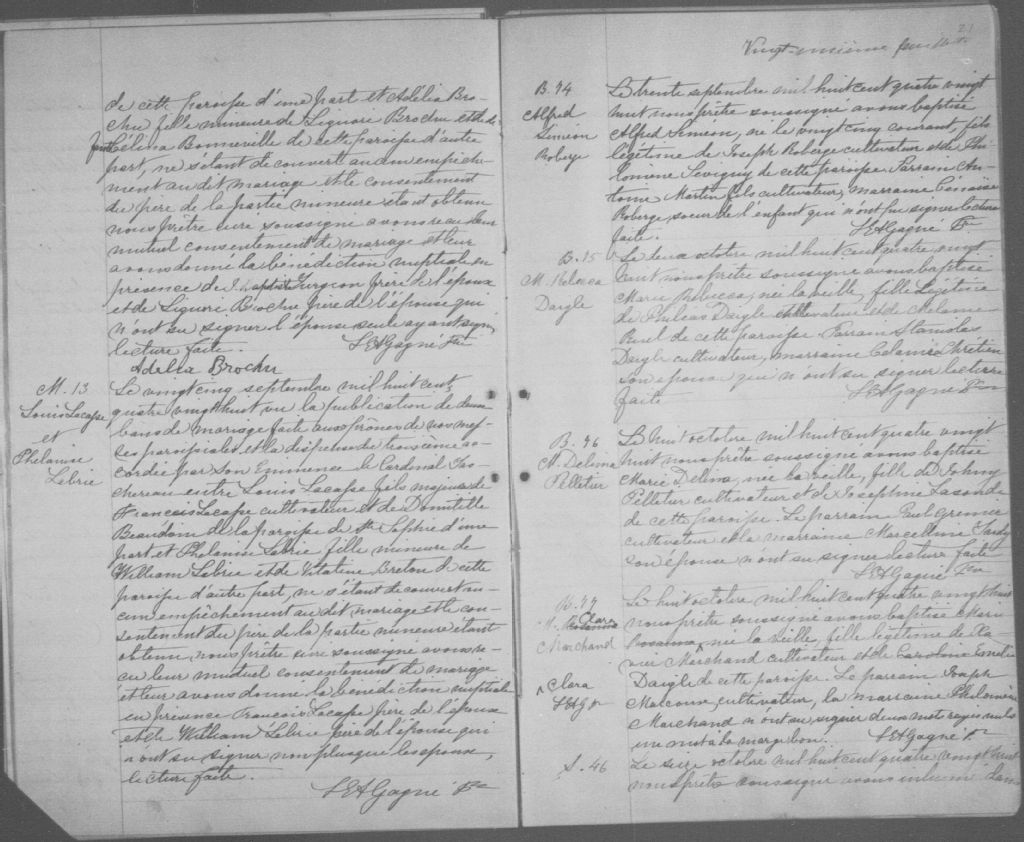 de cette paroisse d'une part et Adélia Bro-
chu fille mineure de Liguori Brochu et de
Célina Bonneville de cette paroisse d'autre
part, ne s'étant découvert aucun empêche-
ment au dit mariage et le consentement
du père de la partie mineure étant obtenu
nous prêtre curé soussigné avons reçu leur
mutuel consentement de mariage et leur
avons donné la bénédiction nuptiale en
présence de Turgeon frère de l'époux
et de Liguori Brochu père de l'épouse qui
n'ont su signer l'épouse seule ayant signé,
lecture faite. LEAGagné Ptre
Adélia Brochu
M. 13
Louis Lacasse
et
Phelanise
Labrie
Le vingt cinq septembre mil huit cent
quatre vingt huit vu la publication de deux
bans de mariage faite aux prônes de nos mes-
ses paroissiales et la dispense de troisième ac-
cordée par Son Eminence le Cardinal Tas-
chereau entre Louis Lacasse fils majeur de
François Lacasse cultivateur et de Domitille
Beaudoin de la paroisse de Ste Sophie d'une
part et Phelanise Labrie fille mineure de
William Labrie et de Vitaline Breton de cette
paroisse d'autre part, ne s'étant découvert au-
cun empêchement au dit mariage et le con-
sentement du père de la partie mineure étant
obtenu, nous prêtre curé soussigné avons re-
çu leur mutuel consentement de mariage
et leur avons donné la bénédiction nuptiale
en présence François Lacasse père de l'époux
et de William Labrie père de l'épouse qui
n'ont su signer non plus que les époux,
lecture faite.
LEAGagné Ptre
21
Vingt-unième feuillet
B. 74
Alfred
Siméon
Roberge
Le trente septembre mil huit cent quatre vingt
huit nous prêtre soussigné avons baptisé
Alfred Siméon, né le vingt cinq courant, fils
légitime de Joseph Roberge cultivateur et de Phi-
lomène Sevigny de cette paroisse Parrain An-
toine Martin fils cultivateur, marraine
Roberge soeur de l'enfant qui n'ont su signer lecture
faite. LEAGagné Ptre
B. 75
M. Rebecca
Daigle
Le deux octobre mil huit cent quatre vingt
huit nous prêtre soussigné avons baptisé
Marie Rebecca, née la veille, fille légitime
de Philéas Daigle cultivateur et de Mélanie
Ruel de cette paroisse Parrain Stanislas
Daigle cultivateur, marraine Chrétien
son épouse qui n'ont su signer lecture
faite LEAGagné Ptre
B. 76
M. Delima
Pelletier
Le huit octobre mil huit cent quatre vingt
huit nous prêtre soussigné avons baptisé
Marie Delima, née la veille, fille de Johny
Pelletier cultivateur et de Joséphine Lasonde
de cette paroisse. Le parrain Paul Grenier
cultivateur et la marraine Marcelline
son épouse n'ont su signer lecture faite
LEAGagné Ptre
B. 77
M. Clara
Marchand
Le huit octobre mil huit cent quatre vingt huit
nous prêtre soussigné avons baptisé Marie
Rosanna, née la veille, fille légitime de Xa-
vier Marchand cultivateur et de Caroline Emélie
Daigle de cette paroisse. Le parrain Joseph
Marcoux cultivateur, la marraine Philomène
Marchand n'ont su signer deux mots rayés nuls
un mot à la marge bon. LEAGagné Ptre
^ Clara
LEAGne
S. 46
Le seize octobre mil huit cent quatre vingt huit
nous prêtre soussigné avons inhumé dans